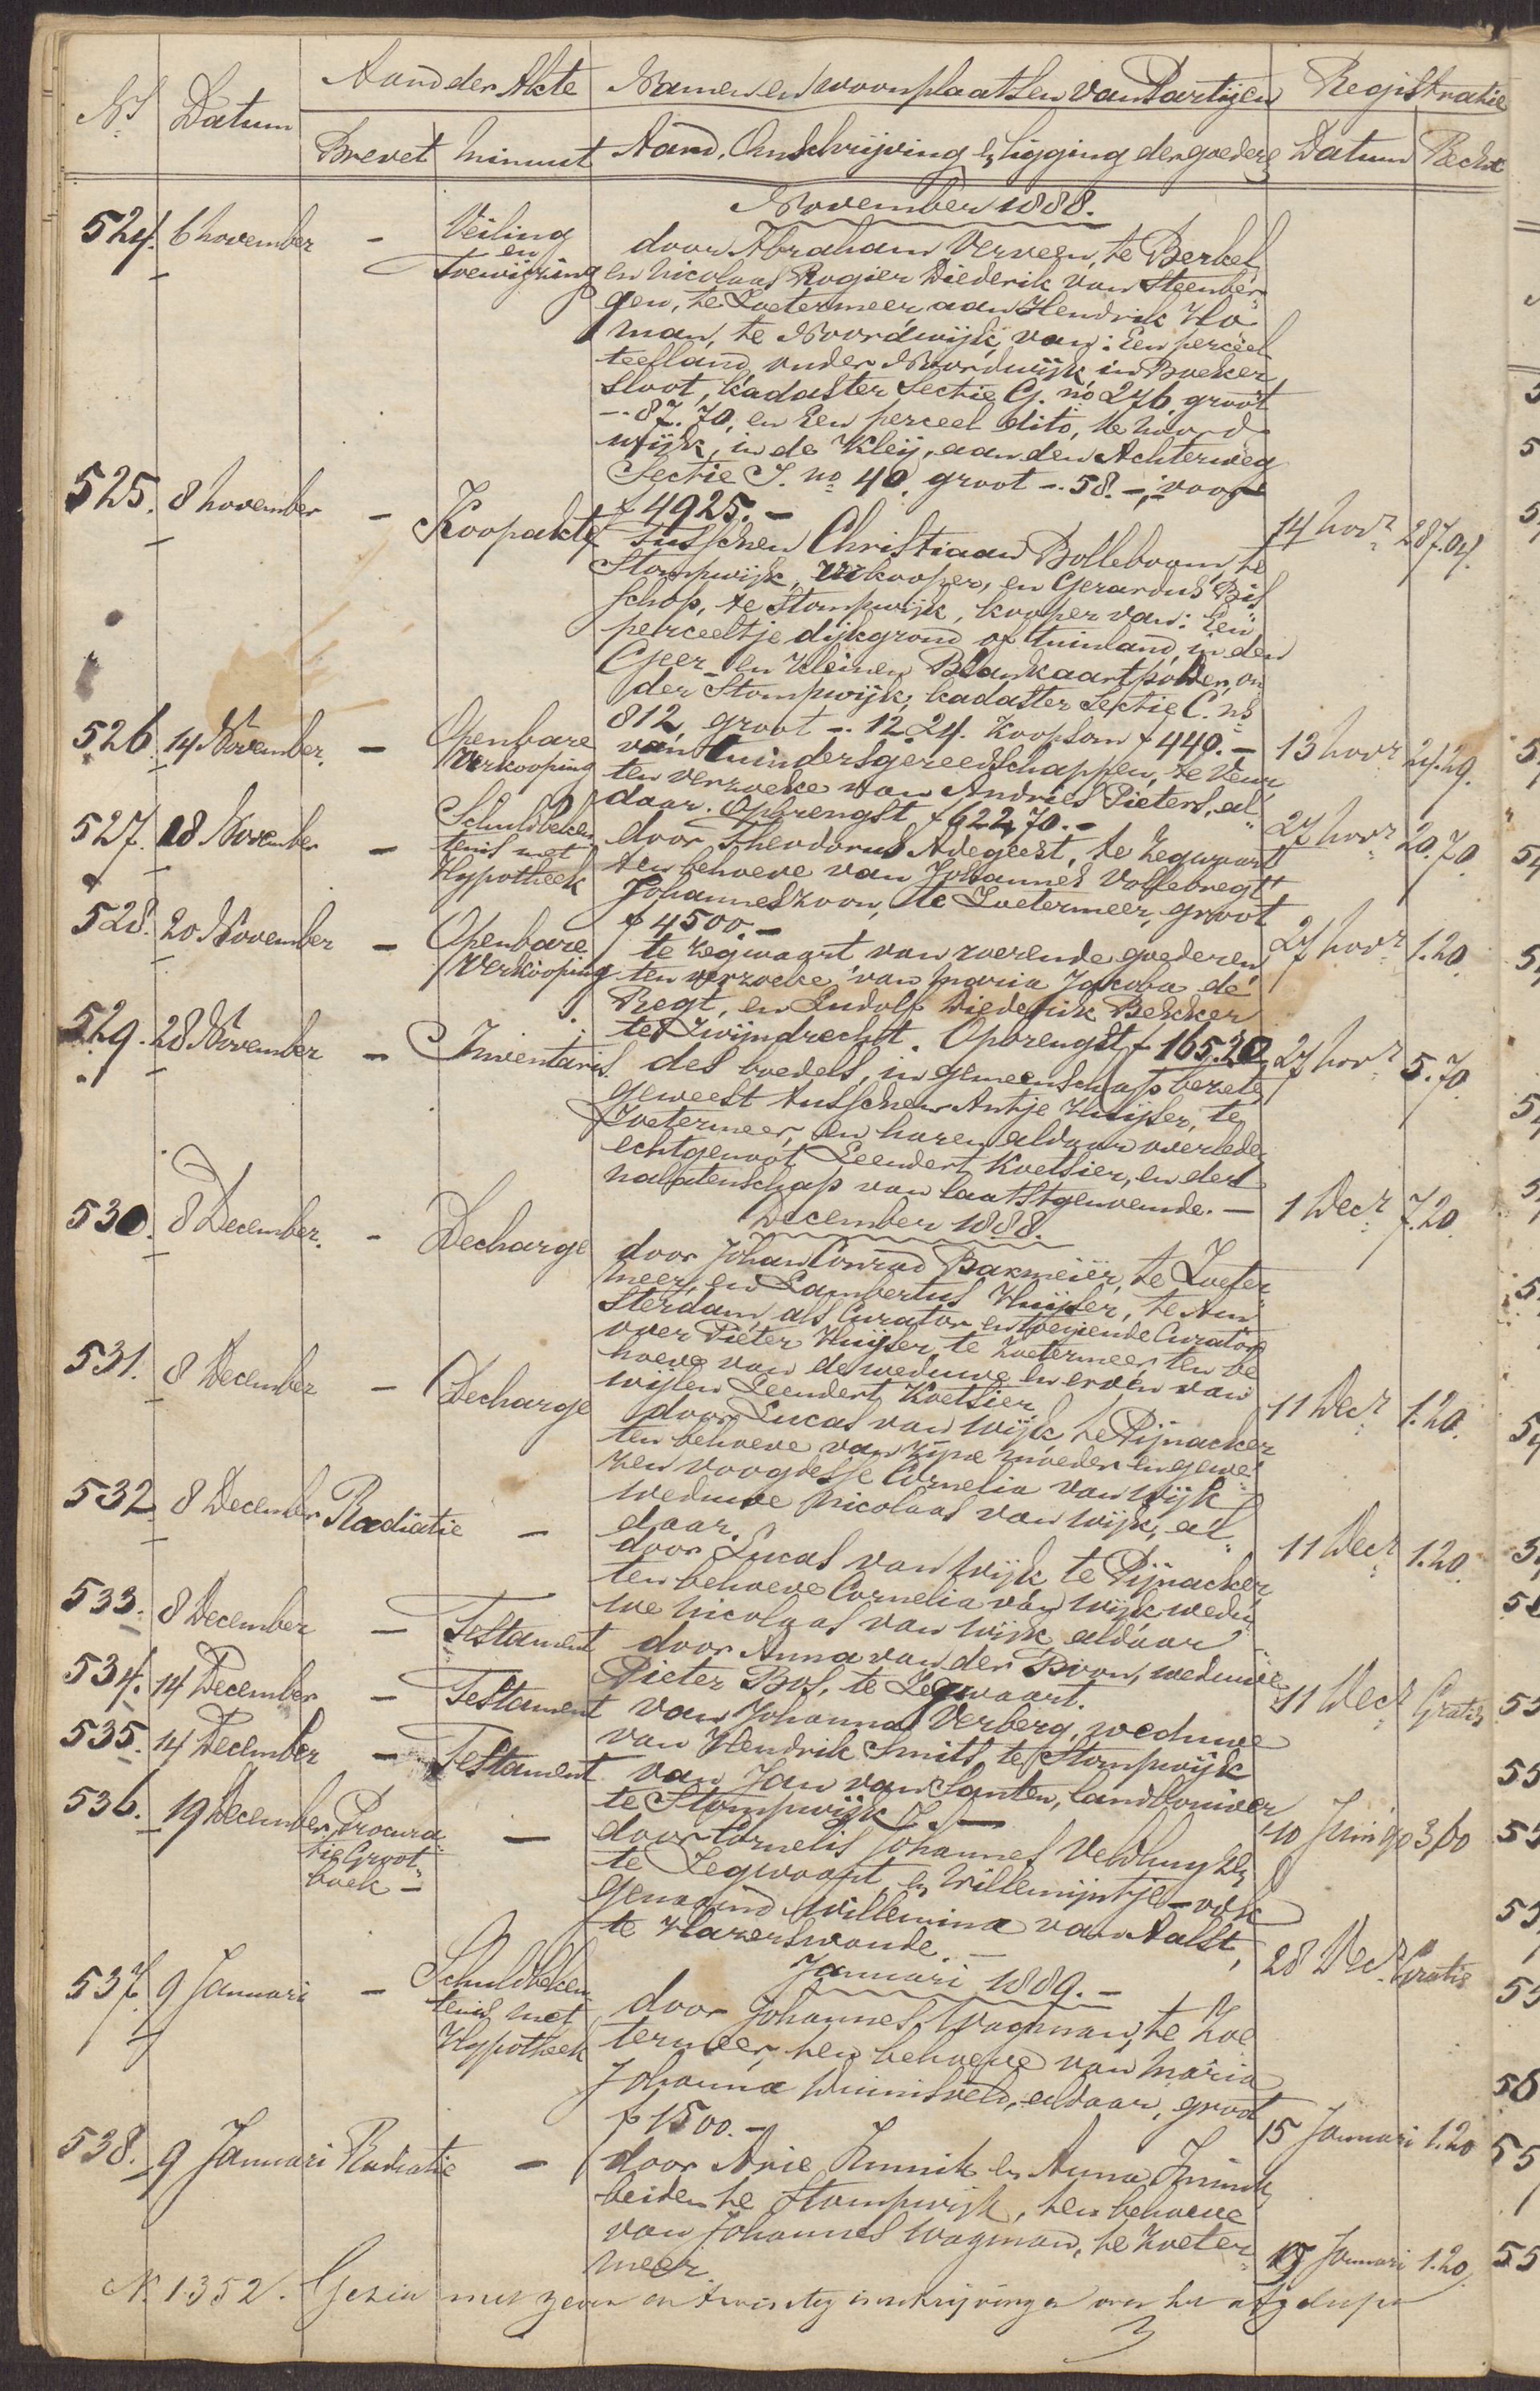 No Datum Aard der Akte Namen en woonplaatsen van Partijen Registratie
Brevet Minuut Aard, Omschrijving en ligging der goederen Datum Recht
November 1888.
524. 6 November - Veiling door Abraham Verveen, te Berkel
en
Toewijzing en Nicolaas Rogier Diederik van Steenber-
gen, te Zoetermeer, aan Hendrik Ho
man, te Noordwijk, van: Een perceel
teelland onder Noordwijk, in
sloot, kadaster Sectie G. no 276, groot
-. 87. 70, en Een perceel dito, te Noord-
wijk, in de Kleij, aan den Achterweg
Sectie J. no 40. groot -. 58. -, voor
f 4925. - 14 Novr 287.04.
525. 8 November - Koopakte Tusschen Christiaan Bolleboom, te
Stompwijk, verkooper, en Gerardus Bis
schop, te Stompwijk, kooper van: Een
perceeltje dijkgrond of tuinland, in den
Geer- en Kleinen Blankaartpolder, on
der Stompwijk, kadaster Sectie C. no
812, groot -. 12. 24. Koopsom f 440. - 13 Novr 24.29.
526 14 November. - Openbare van tuindersgereedschappen, te Veur
Verkooping ten verzoeke van Andries Pieters, al
daar. Opbrengst f 622,70. - 27 Novr 20.70.
527. 18 November - Schuldbeken door Theodorus Adegeest, te Zegwaart
tenis met ten behoeve van Johannes Vollebregt
Hypotheek Johanneszoon, te Zoetermeer, groot
f 4500. - 27 Novr 1.20.
528. 20 November - Openbare te Zegwaart van roerende goederen
Verkooping ten verzoeke van Maria Jacoba de
Regt, en Ludolf Diederik Bekker
te Zwijndrecht. Opbrengst f 165.20 27 Novr 5.70
529. 28 November - Inventaris. des boedels, in gemeenschap bezeten
geweest tusschen Antje Huijser, te
Zoetermeer, en haren aldaar overleden
echtgenoot Leendert Koetsier, en der
nalatenschap van laatstgenoemde. - 1 Decr 7.20.
December 1888.
530. 8 December. - Decharge door Johan Conrad Bakmeijer, te Zoeter
meer, en Lambertus Huijser, te Am
sterdam, als Curator en toeziende Curator
over Pieter Huijser te Zoetermeer ten be
hoeve van de weduwe en erven van
wijlen Leendert Koetsier 11 Decr 1.20.
531. 8 December - Decharge door Lucas van Wijk, te Pijnacker
ten behoeve van zijne moeder en gewe
zen voogdesse Cornelia van Wijk
weduwe Nicolaas van Wijk, al
daar. 11 Decr 1.20.
532 8 December Radiatie - door Lucas van Wijk te Pijnacker
ten behoeve Cornelia van Wijk wedu
we Nicolaas van Wijk aldaar
533. 8 December - Testament door Anna van der Boon, weduwe
Pieter Bos, te Zegwaart. 11 Decr Gratis
534. 14 December - Testament van Johanna Verberg, weduwe
van Hendrik Smits, te Stompwijk
535. 14 December - Testament van Jan van Santen, landbouwer
te Stompwijk 10 Juni 90 3,60
536. 19 December Procura door Cornelis Johannes Veldhuyzen
tie Groot te Zegwaart, en Willemijntje - ook
boek - genaamd Willemina van Aalst,
te Hazerswoude. - 28 Decr Gratis
Januari 1889. -
537. 9 Januari - Schuldbeken door Johannes Wagman, te Zoe
tenis met termeer, ten behoeve van Maria
Hypotheek Johanna Duinisveld, aldaar, groot
f 1500. - 15 Januari 1.20
538. 9 Januari Radiatie - door Arie Kunnik en Anna
beiden te Stompwijk, ten behoeve
van Johannes Wagman, te Zoeter
meer. 15 Januari 1.20.
N. 1352. Gezien met zeven en twintig inschrijvingen over het afgeloopen
3